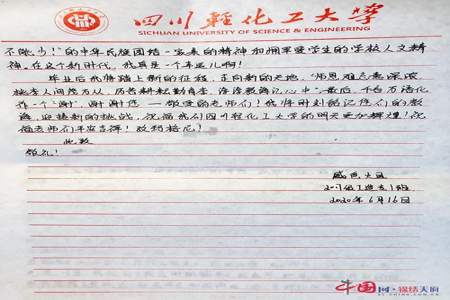 四川轻化工大学
SICHUAN UNIVERSITY OF SCIENCE & ENGINEERING
不能少！"的中华民族团结一家亲的精神和拥军爱学生的学校人文精
神。在这个新时代，我真是一个幸运儿啊！
毕业后我将踏上新的征程，走向新的天地，"师恩难忘意深浓，
桃李人间茂万丛，历苦耕耘勤育李，滴滴教诲记心中"最后，千言万语化
作一个"谢"，谢谢您——敬爱的老师们！我将时刻铭记您们的教
诲，迎接新的挑战，祝福我们四川轻化工大学的明天更加辉煌！祝
福老师们平安吉祥！扎西德勒！
此致
敬礼！
2020年6月16日
中国网·锦绣天府